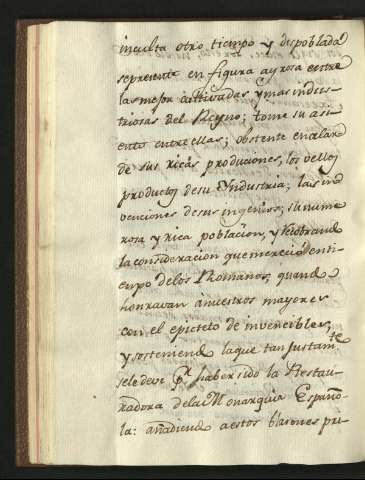 inculta otro tiempo y despoblada
se presente en figura ayrosa entre
las mejor cultivadas y mas indus-
triosas del Reyno; tome su asi-
ento entre ellas; obstente en
de sus ricas produciones, los vellos
productos de su Yndustria; las in-
venciones de sus ingenios; su nume
rosa y rica poblacion, y recobrand
la consideracion que merecio en ti-
empo de los Romanos, quand
honravan a nuestros mayores
con el epicteto de invencibles,
y sosteniend la que tan justam.te
se le deve p.r haber sido la Restau-
radora de la Monarquia Españo
la: añadiend a estos blasones pri-